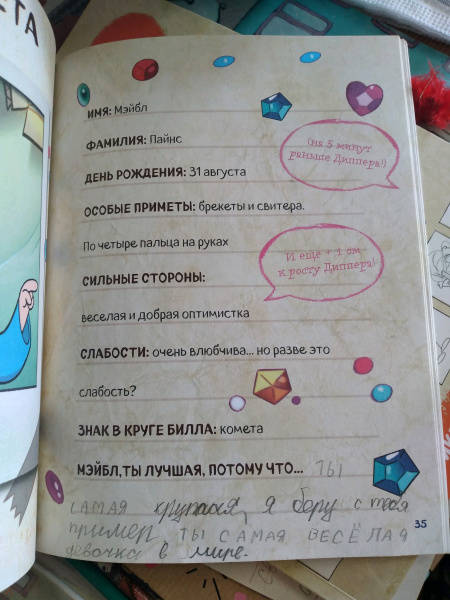 ЕТА
ИМЯ: Мэйбл
ФАМИЛИЯ: Пайнс
(на 5 минут
раньше Диппера!)
ДЕНЬ РОЖДЕНИЯ: 31 августа
ОСОБЫЕ ПРИМЕТЫ: брекеты и свитера.
По четыре пальца на руках
И еще + 1 см
к росту Диппера!
СИЛЬНЫЕ СТОРОНЫ:
веселая и добрая оптимистка
СЛАБОСТИ: очень влюбчива... но разве это
слабость?
ЗНАК В КРУГЕ БИЛЛА: комета
МЭЙБЛ,ТЫ ЛУЧШАЯ, ПОТОМУ ЧТО... ТЫ
САМАЯ крутая, я беру с тебя
пример, ТЫ САМАЯ ВЕСЁЛАЯ
девочка в мире.
35